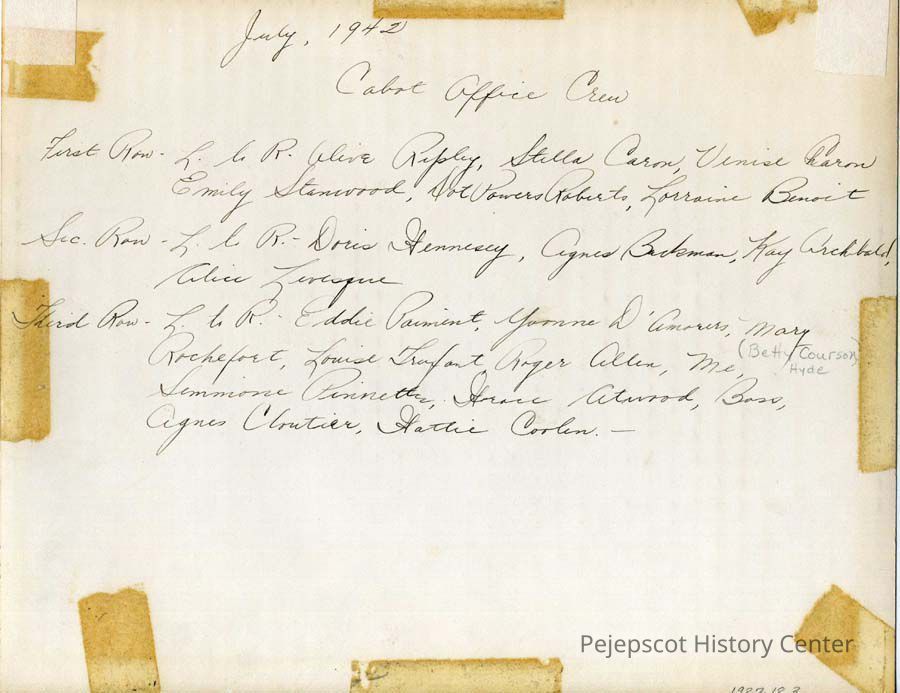 July, 1942
Cabot Office Crew
First Row - L. to R. Olive Ripley, Stella Caron, Venise Caron
Emily Stanwood, Dot Powers Roberts, Lorraine Benoit
Sec. Row - L. to R. - Doris Hennesey, Agnes Beckman, Kay Archibald,
Alice Levesque
Third Row - L. to R. - Eddie Paiment, Yvonne D'Amours, Mary
Rochefort, Louise Trufant, Roger Allen, Me,
(Betty Courson)
Hyde
Pinnette, Horace Atwood, Boss,
Agnes Cloutier, Hattie Coolen. -
Pejepscot History Center